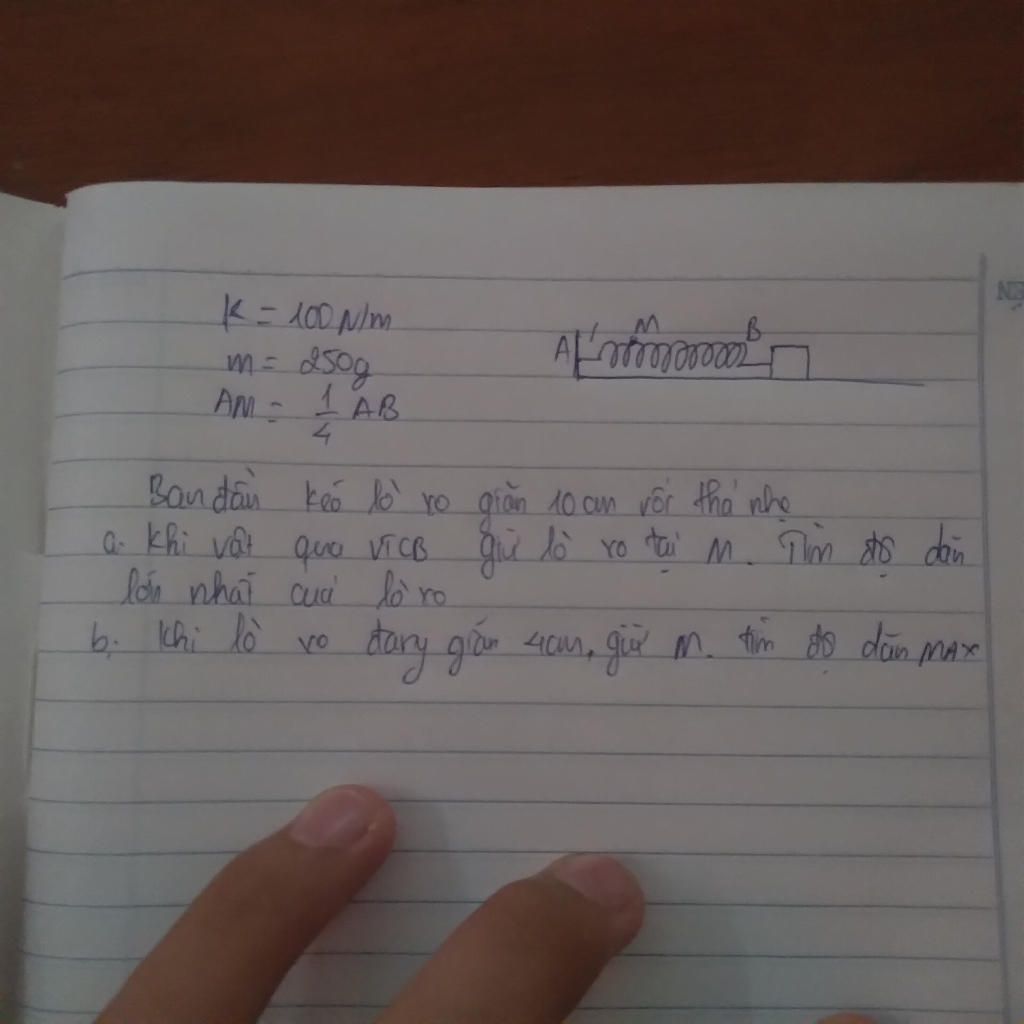 K = 100 N/m
m = 250g
AM = 1/4 AB
A M B
Ban đầu kéo lò xo giãn 10 cm rồi thả nhẹ
a. Khi vật qua VTCB giữ lò xo tại M. Tìm độ dãn
lớn nhất của lò xo
b. Khi lò xo đang giãn 4cm, giữ M. tìm độ dãn MAX